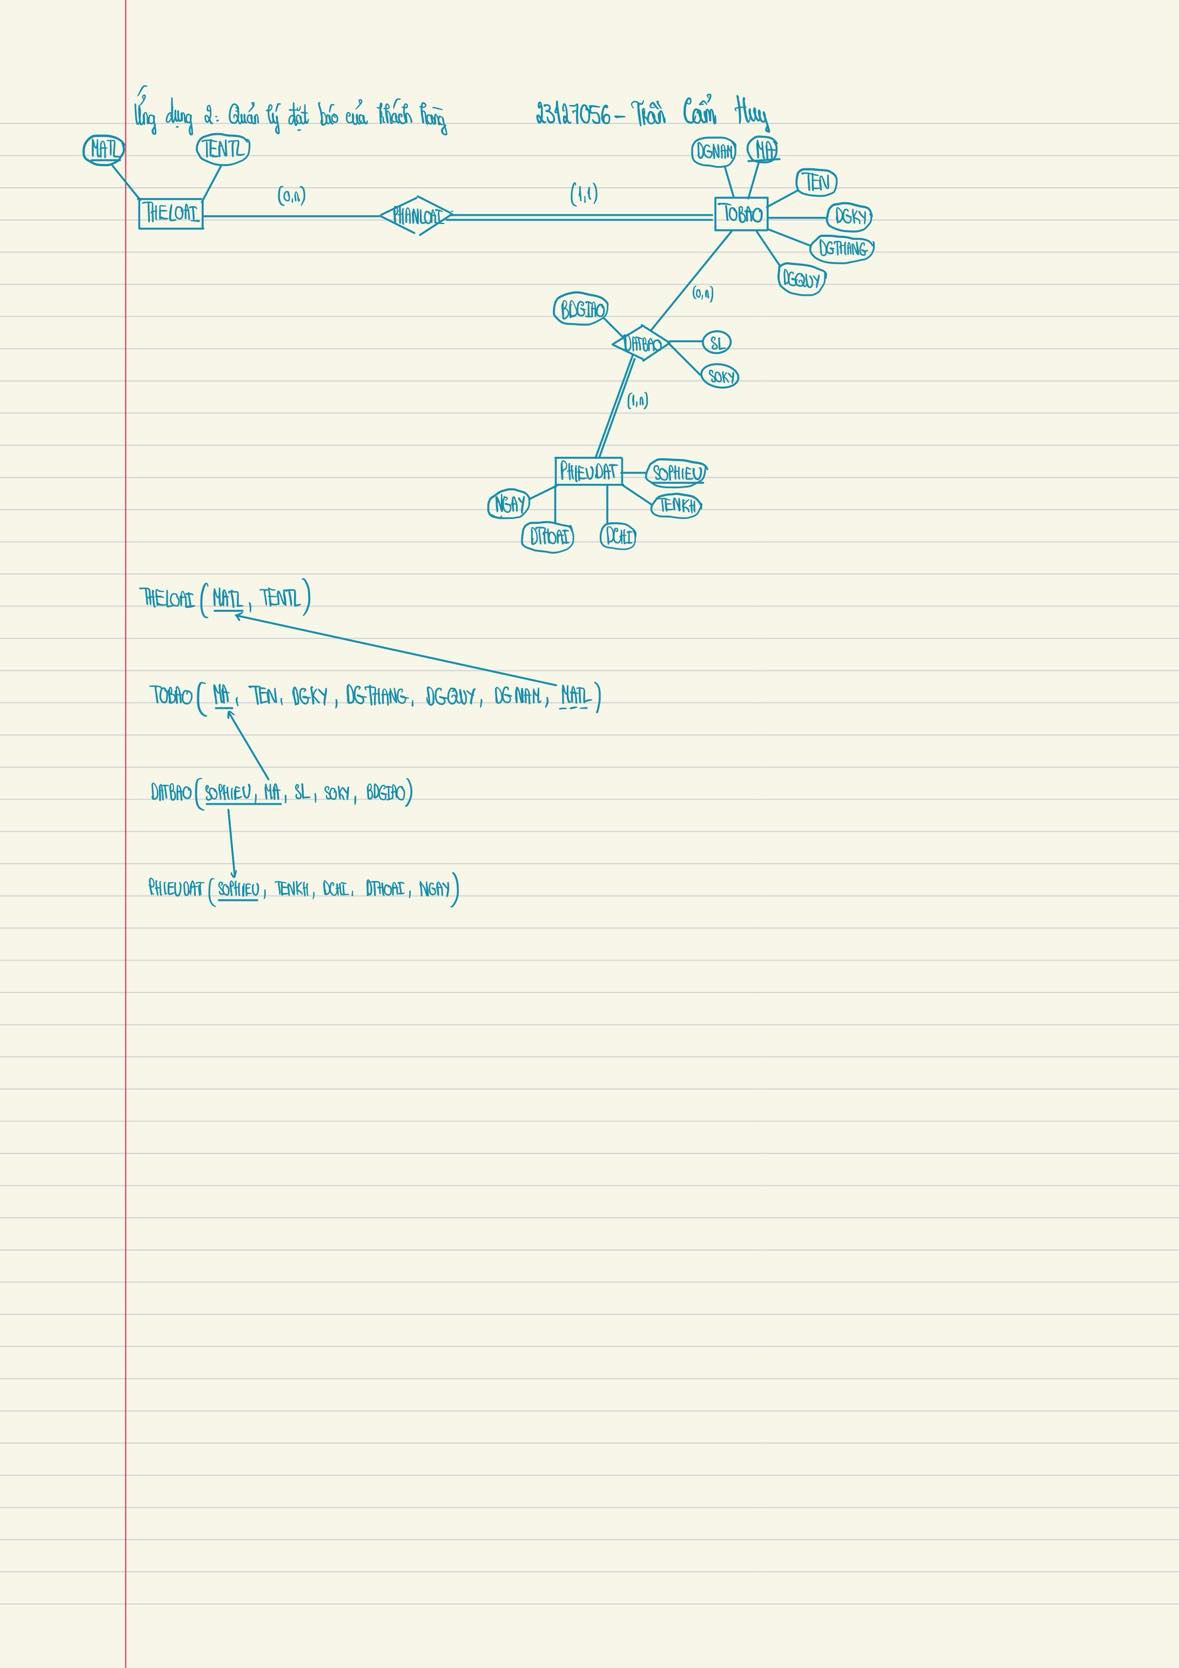 Ứng dụng 2: Quản lý đặt báo của khách hàng 23127056 - Trần Cẩm Huy
MATL TENTL DGNAM MA
TEN
THELOAI (0,n) PHANLOAI (1,1) TOBAO DGKY
DGTHANG
DGQUY
(0,n)
BDGIAO
DATBAO SL
SOKY
(1,n)
PHIEUDAT SOPHIEU
NGAY TENKH
DTHOAI DCHI
THELOAI (MATL, TENTL)
TOBAO (MA, TEN, DGKY, DGTHANG, DGQUY, DGNAM, MATL)
DATBAO (SOPHIEU, MA, SL, SOKY, BDGIAO)
PHIEUDAT (SOPHIEU, TENKH, DCHI, DTHOAI, NGAY)